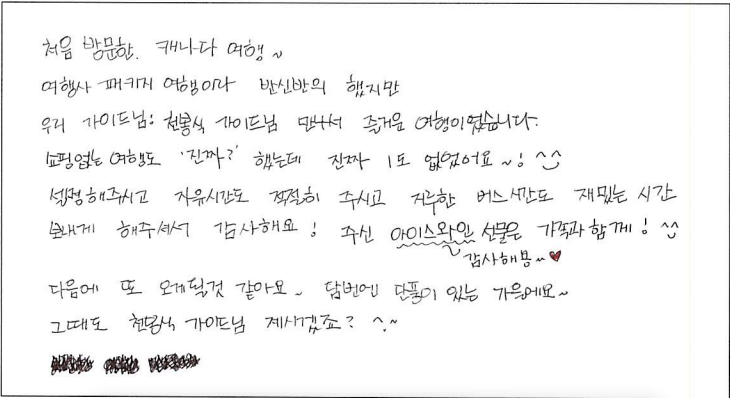 처음 방문한. 캐나다 여행~
여행사 패키지 여행이라 반신반의 했지만
우리 가이드님: 천봉식 가이드님 만나서 즐거운 여행이였습니다.
쇼핑없는 여행도 '진짜?' 했는데 진짜 1도 없었어요~! ^^
설명해주시고 자유시간도 적절히 주시고 지루한 버스시간도 재밌는 시간
보내게 해주셔서 감사해요! 주신 아이스와인 선물은 가족과 함께! ^^
감사해용~♥
다음에 또 오게될것 같아요~ 담번엔 단풍이 있는 가을에요~
그때도 천봉식 가이드님 계시겠죠? ^.~